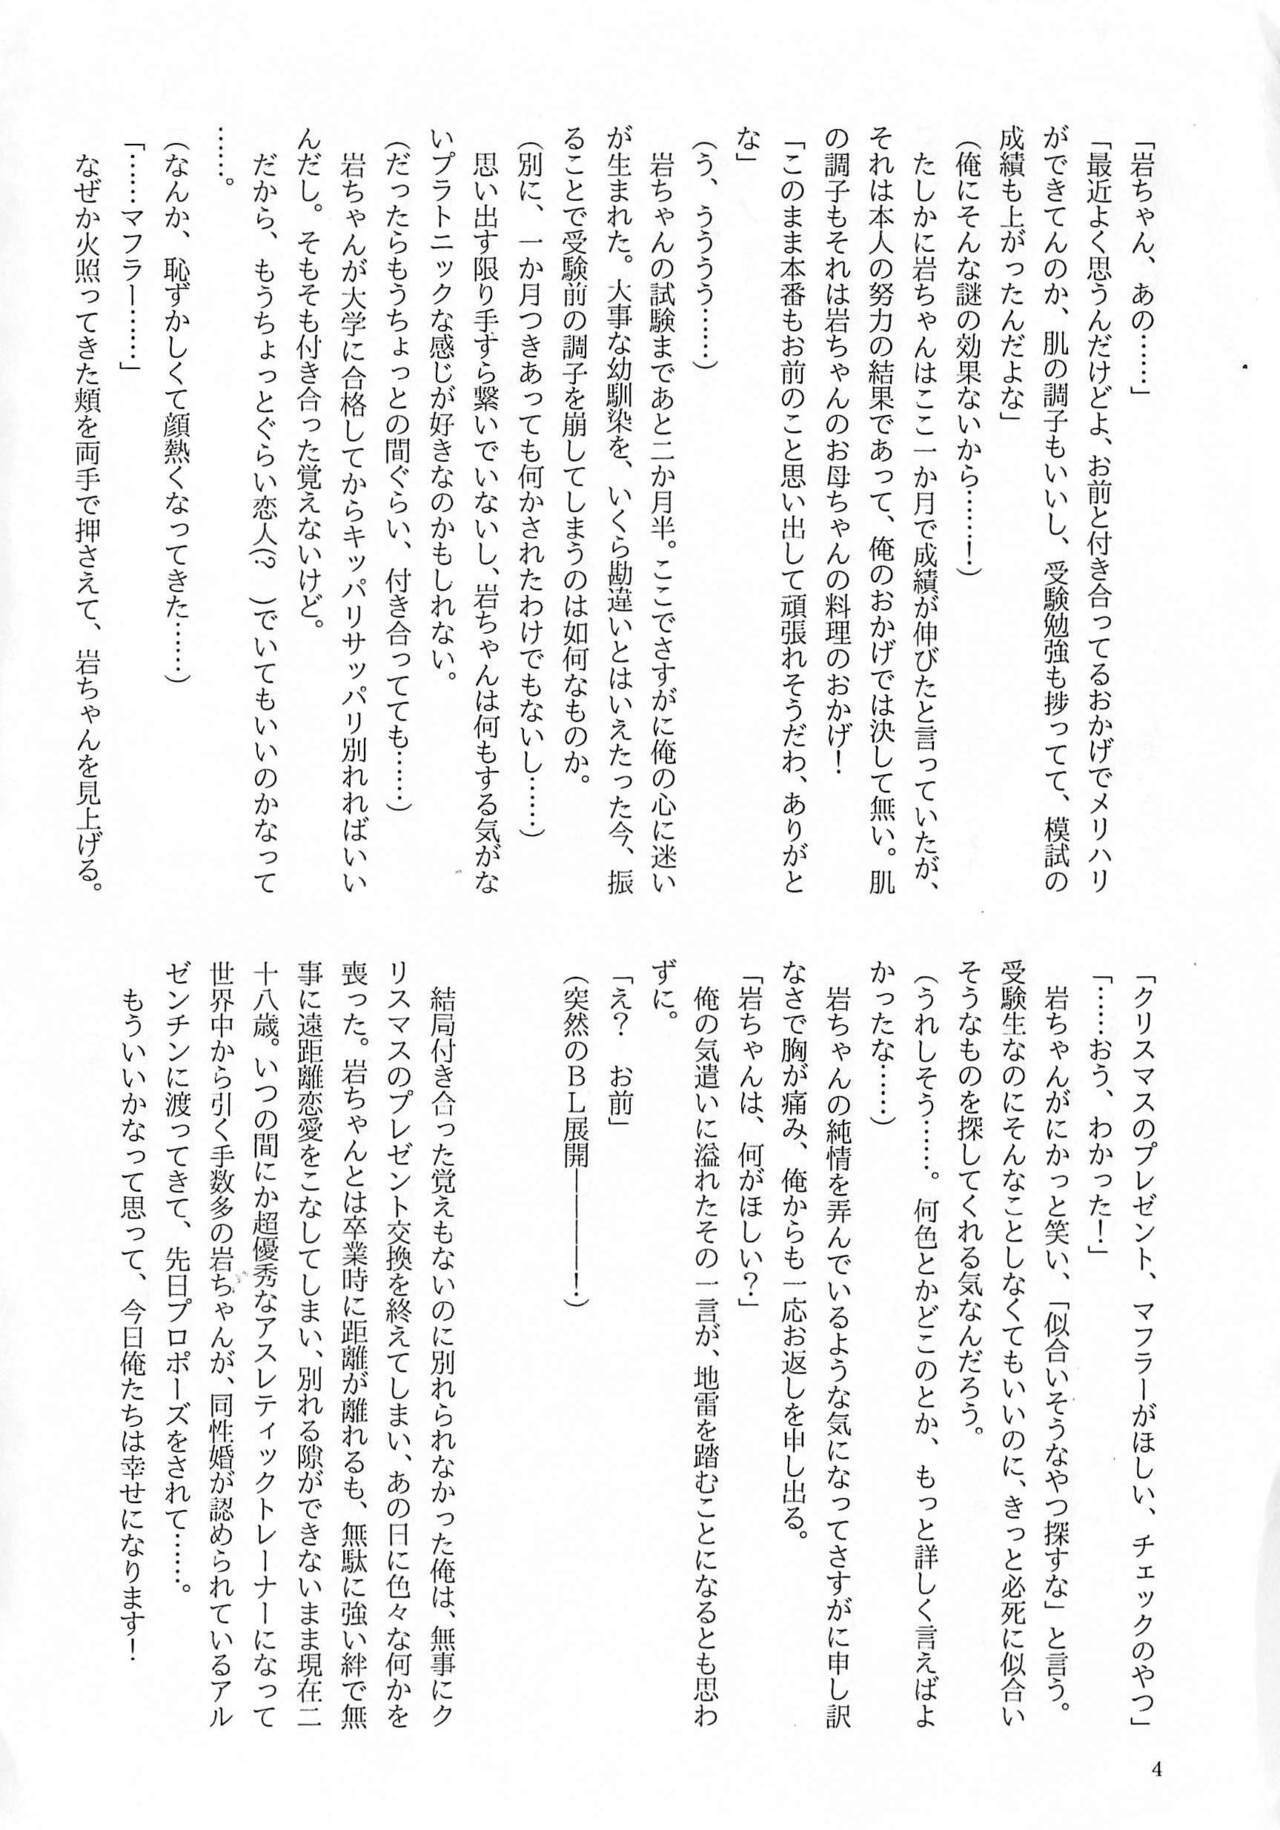 「岩ちゃん、あの……」
「最近よく思うんだけどよ、お前と付き合ってるおかげでメリハリ
ができてんのか、肌の調子もいいし、受験勉強も捗ってて、模試の
成績も上がったんだよな」
（俺にそんな謎の効果ないから……！）
たしかに岩ちゃんはここ一か月で成績が伸びたと言っていたが、
それは本人の努力の結果であって、俺のおかげでは決して無い。肌
の調子もそれは岩ちゃんのお母ちゃんの料理のおかげ！
「このまま本番もお前のこと思い出して頑張れそうだわ、ありがと
な」
（う、うううう……）
岩ちゃんの試験まであと二か月半。ここでさすがに俺の心に迷い
が生まれた。大事な幼馴染を、いくら勘違いとはいえたった今、振
ることで受験前の調子を崩してしまうのは如何なものか。
（別に、一か月つきあっても何かされたわけでもないし……）
思い出す限り手すら繋いでいないし、岩ちゃんは何もする気がな
いプラトニックな感じが好きなのかもしれない。
（だったらもうちょっとの間ぐらい、付き合ってても……）
岩ちゃんが大学に合格してからキッパリサッパリ別れればいい
んだし。そもそも付き合った覚えないけど。
だから、もうちょっとぐらい恋人（？　）でいてもいいのかなって
……。
（なんか、恥ずかしくて顔熱くなってきた……）
「……マフラー……」
なぜか火照ってきた頬を両手で押さえて、岩ちゃんを見上げる。
「クリスマスのプレゼント、マフラーがほしい、チェックのやつ」
「……おう、わかった！」
岩ちゃんがにかっと笑い、「似合いそうなやつ探すな」と言う。
受験生なのにそんなことしなくてもいいのに、きっと必死に似合い
そうなものを探してくれる気なんだろう。
（うれしそう……。何色とかどこのとか、もっと詳しく言えばよ
かったな……）
岩ちゃんの純情を弄んでいるような気になってさすがに申し訳
なさで胸が痛み、俺からも一応お返しを申し出る。
「岩ちゃんは、何がほしい？」
俺の気遣いに溢れたその一言が、地雷を踏むことになるとも思わ
ずに。
「え？　お前」
（突然のＢＬ展開――――！）
結局付き合った覚えもないのに別れられなかった俺は、無事にク
リスマスのプレゼント交換を終えてしまい、あの日に色々な何かを
喪った。岩ちゃんとは卒業時に距離が離れるも、無駄に強い絆で無
事に遠距離恋愛をこなしてしまい、別れる隙ができないまま現在二
十八歳。いつの間にか超優秀なアスレティックトレーナーになって
世界中から引く手数多の岩ちゃんが、同性婚が認められているアル
ゼンチンに渡ってきて、先日プロポーズをされて……。
もういいかなって思って、今日俺たちは幸せになります！
4